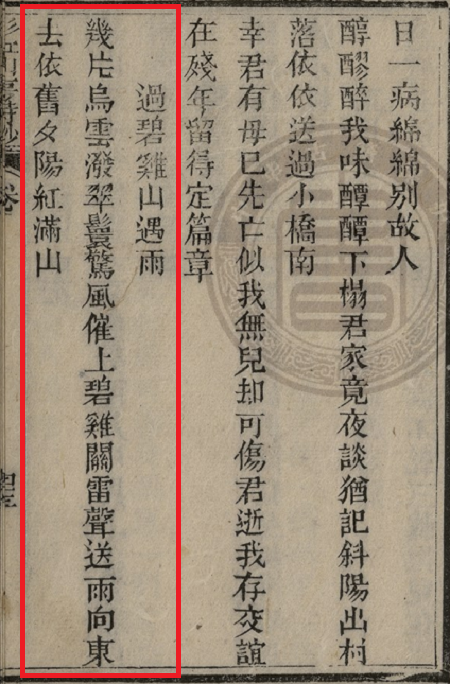 日一病綿綿别故人
醇醪醉我味醰醰下榻君家竟夜談猶記斜陽出村
落依依送過小橋南
幸君有母已先亡似我無兒却可傷君逝我存交誼
在殘年留得定篇章
過碧雞山遇雨
幾片烏雲潑翠鬟驚風催上碧雞關雷聲送雨向東
去依舊夕陽紅滿山